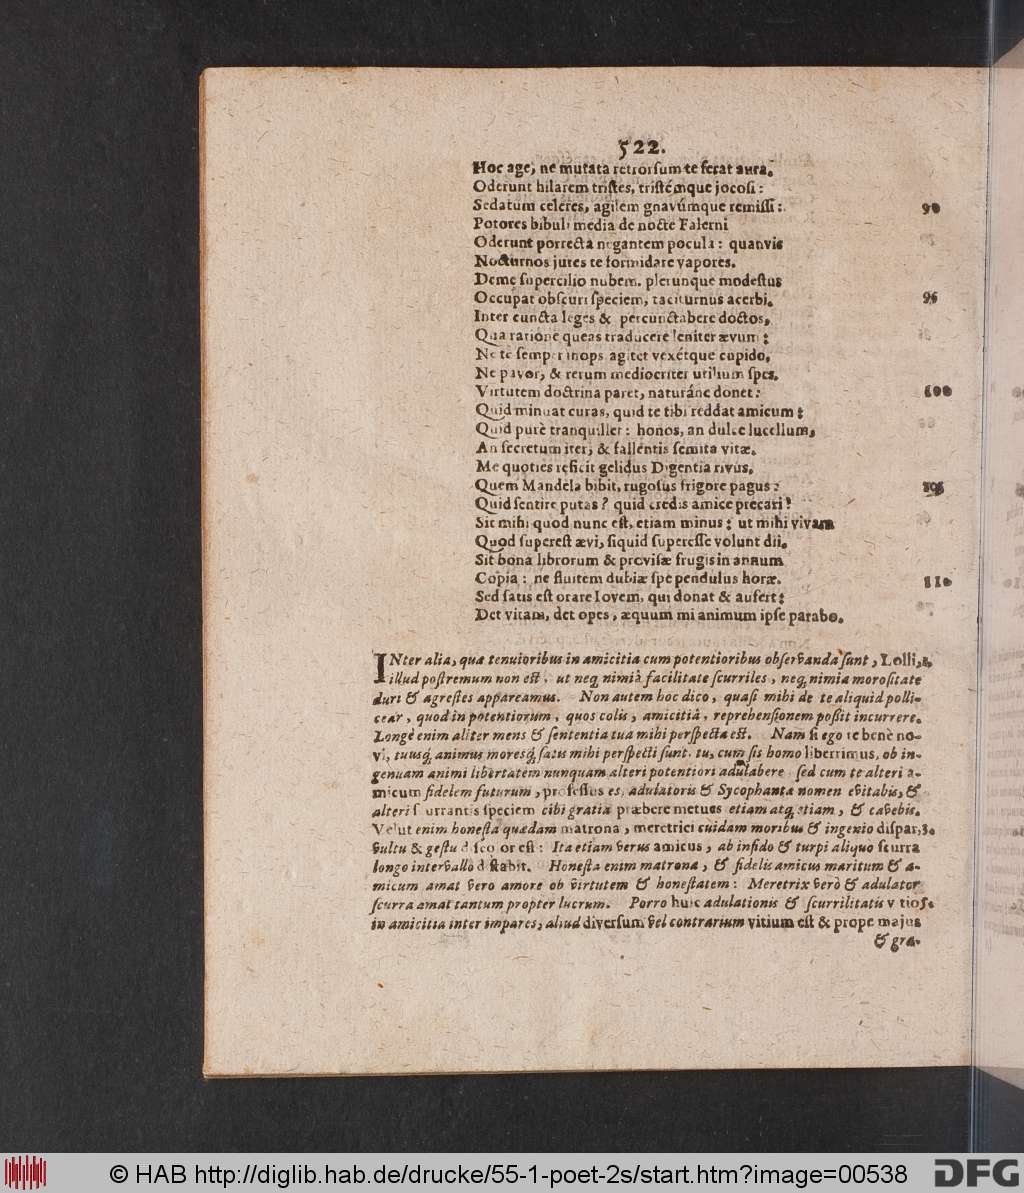 522.
Hoc age, ne mutata retrorsum te ferat aura.
Oderunt hilarem tristes, tristémque jocosi:
Sedatum celeres, agilem gnavúmque remissi: 90
Potores bibuli media de nocte Falerni
Oderunt porrecta negantem pocula: quanvis
Nocturnos jures te formidare vapores.
Deme supercilio nubem. plerunque modestus
Occupat obscuri speciem, taciturnus acerbi. 95
Inter cuncta leges & percunctabere doctos,
Qua ratione queas traducere leniter ævum:
Ne te semper inops agitet vexétque cupido,
Ne pavor, & rerum mediocriter utilium spes.
Virtutem doctrina paret, naturáne donet: 100
Quid minuat curas, quid te tibi reddat amicum:
Quid purè tranquillet: honos, an dulce lucellum,
An secretum iter, & fallentis semita vitæ.
Me quoties reficit gelidus Digentia rivus,
Quem Mandela bibit, rugosus frigore pagus: 105
Quid sentire putas? quid credis amice precari?
Sit mihi quod nunc est, etiam minus: ut mihi vivam
Quod superest ævi, siquid superesse volunt dii.
Sit bona librorum & provisæ frugis in annum
Copia: ne fluitem dubiæ spe pendulus horæ. 110
Sed satis est orare Iovem, qui donat & aufert:
Det vitam, det opes, æquum mi animum ipse parabo.
INter alia, quæ tenuioribus in amicitia cum potentioribus observanda sunt, Lolli, 1.
illud postremum non est, ut neq; nimiâ facilitate scurriles, neq; nimia morositate
duri & agrestes appareamus. Non autem hoc dico, quasi mihi de te aliquid polli-
cear, quod in potentiorum, quos colis, amicitiâ, reprehensionem possit incurrere.
Longè enim aliter mens & sententia tua mihi perspecta est. Nam si ego te benè no-
vi, tuusq; animus moresq; satis mihi perspecti sunt. tu, cum sis homo liberrimus, ob in-
genuam animi libertatem nunquam alteri potentiori adulabere sed cum te alteri a-
micum fidelem futurum, professus es, adulatoris & Sycophanta nomen evitabis, &
alteri scurrantis speciem cibi gratia præbere metues etiam atq; etiam, & cavebis.
Velut enim honesta quædam matrona, meretrici cuidam moribus & ingenio dispar, 3.
vultu & gestu discolor est: Ita etiam verus amicus, ab infido & turpi aliquo scurra
longo intervallo distabit. Honesta enim matrona, & fidelis amicus maritum & a-
micum amat vero amore ob virtutem & honestatem: Meretrix verò & adulator
scurra amat tantum propter lucrum. Porro huic adulationis & scurrilitatis vitio 5.
in amicitia inter impares, aliud diversum vel contrarium vitium est & prope majus
& gra-
© HAB http://diglib.hab.de/drucke/55-1-poet-2s/start.htm?image=00538
DFG